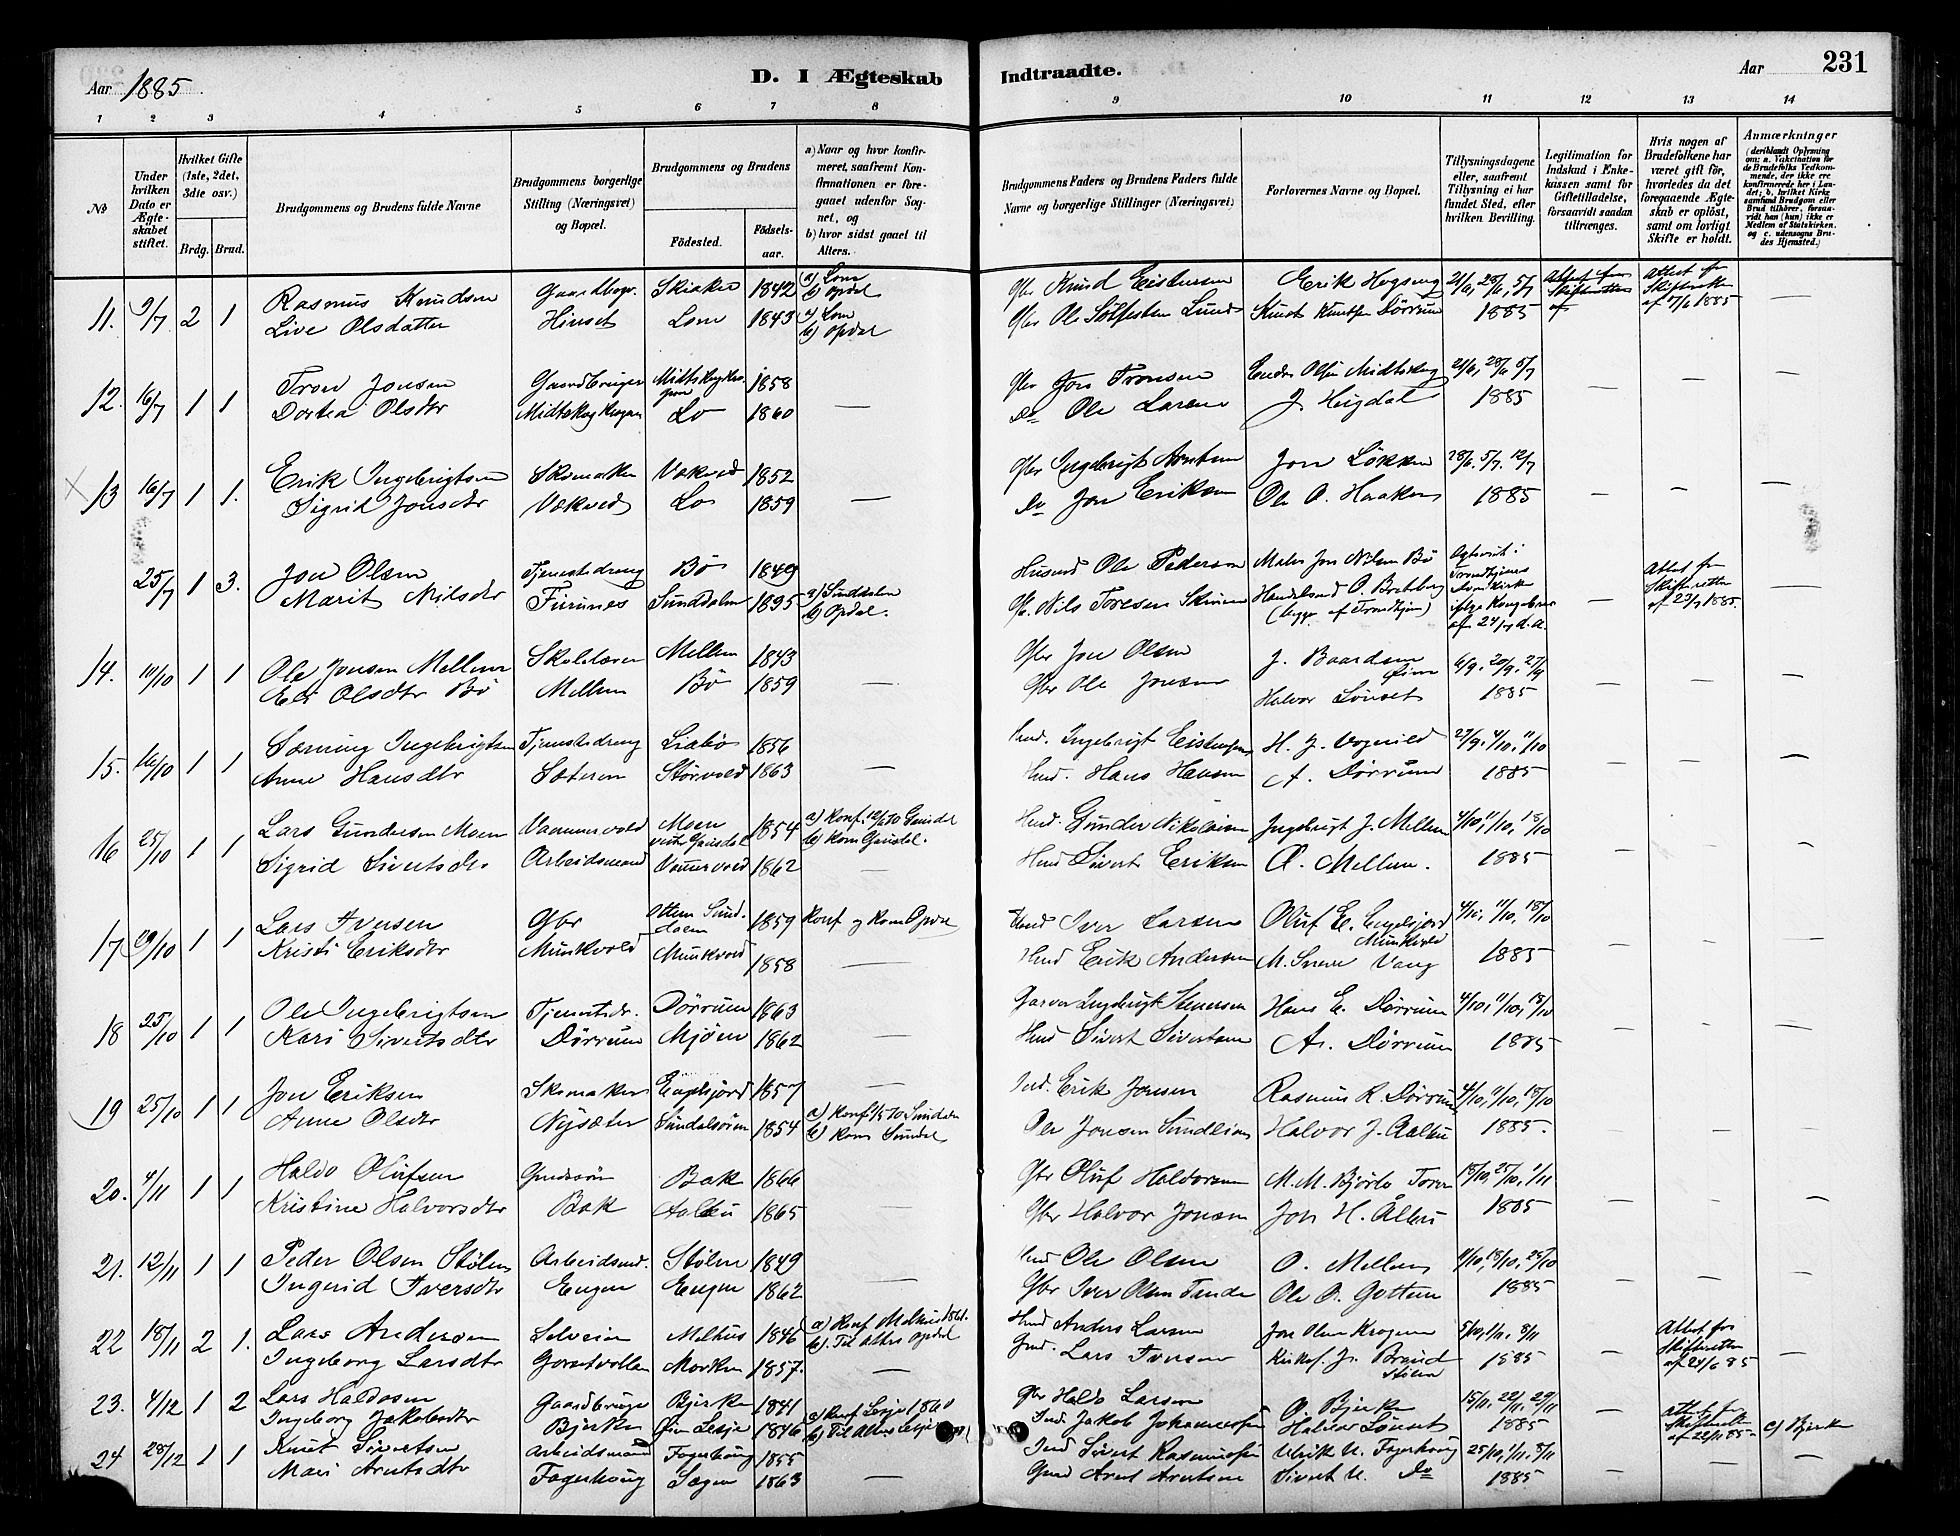 Aar 1885.
D. I Ægteskab
Indtraadte.
Aar
231
1 2 3 4 5 6 7 8
9 10 11 12 13 14
No
Under hvilken Dato er Ægteskabet stiftet.
Hvilket Gifte (1ste, 2det, 3die osv.)
Brdg. Brud.
Brudgommens og Brudens fulde Navne
Brudgommens borgerlige Stilling (Næringsvei) og Bopæl.
Brudgommens og Brudens
Fødested. Fødselsaar.
a) Naar og hvor konfirmeret, saafremt Konfirmationen er foregaaet udenfor Sognet, og
b) hvor sidst gaaet til Alters.
Brudgommens Faders og Brudens Faders fulde Navne og borgerlige Stillinger (Næringsvei)
Forlovernes Navne og Bopæl.
Tillysningsdagene eller, saafremt Tillysning ei har fundet Sted, efter hvilken Bevilling.
Legitimation for Indskud i Enkekassen samt for Giftetilladelse, forsaavidt saadan tiltrænges.
Hvis nogen af Brudefolkene har været gift før, hvorledes da det foregaaende Ægteskab er opløst, samt om lovligt Skifte er holdt.
Anmærkninger (deriblandt Oplysning om: a. Vakcination for de Brudefolks Vedkommende, der ikke ere konfirmerede her i Landet; b. hvilket Kirkesamfund Brudgom eller Brud tilhører, forsaavidt han (hun) ikke er Medlem af Statskirken. og c. udensogns Brudes Hjemsted.)
11. 9/7 2 1 Rasmus Knudsen Gaardbgr. Skiaker 1842 a) Lom b) Opdal Gbr Knud Eistensen Erik Hogseng 21/6, 28/6, 5/7 Attest fra Skifteretten af Attest fra Skifteretten —
Live Olsdatter Hinset Lom 1843 a) Lom b) Opdal Gbr Ole Solfesten Lund Knut Knutsen Dørrum 1885 1885
12. 16/7 1 1 Tron Jonsen Gaardbruger 1858 Gbr Jon Tronsen Endre Olsen Midtskog 21/6, 28/6 5/7 — — —
Dortea Olsdtr Midtskogkrogen Lo 1860 — Do Ole Larsen J. Heigdal 1885
13 16/7 1 1. Erik Ingebrigtsen Skomaker Vekved 1852 Gbr Ingebrigt Arntsen Jon Løkken 28/6. 5/7. 12/7 — — —
Sigrid Jonsdtr Vekved Lo 1859 — Do Jon Eriksen Ole O. Haaker 1885
25/7 1 3. Jon Olsen Tjenestedreng Bø 1849 Husmd Ole Pedersen Maler Jon Nilsen Bø Attest fra Skifteretten af 23/7 1885.
Marit Nilsdtr Furunes Sunddalen 1895 a) Sunddalen b) Opdal. Gbr. Nils Toresen (begge af Trondhjem) Trondhjems Domkirke af 24/7 d. A. —
14. 10/10 1 1 Ole Jonsen Mellem Skolelærer Mellem 1843 Gbr Jon Olsen J. Baardsen 6/9. 20/9. 27/9 — — —
Eli Olsdtr Bø Mellem Bø 1859 — Gbr Ole Jonsen Halvor Lønset 1885
15. 16/10 1 1 Ingebrigtsen Tjenestedreng Liabø 1856 Hmd. Ingebrigt Eistensen H. J. Vognild 27/9. 4/10, 11/10 — — —
Anne Hansdtr Sæteren Størvold 1863 — Hmd. Hans Hansen A. Dørrum 1885
16 25/10 1 1 Lars Gundersen Moen Vammervold Moen 1854 a) Konf. b) Kom Hmd. Gunder Nikolaisen Ingebrigt J. Mellem 4/10, 11/10, 18/10 — — —
Sigrid Sivertsdtr Arbeidsmand Vammervold 1862 — Hmd Sivert Eriksen O. Mellem. 1885
17 29/10 1 1 Lars Iversen Gbr Ottem Sunddalen 1859 Konf og Kom Opdal Hmd Iver Larsen Oluf E. Engelsjord Munkvold 4/10, 11/10, 18/10 — — —
Kristi Eriksdtr Munkvold Munkvold 1858 — Hmd Erik Andersen M. Vang 1885
18 25/10 1 1 Ole Ingebrigtsen Tjenestdr. Dørrum 1863 Garver Ingebrigt Stenersen Hans E. Dørrum 4/10, 11/10, 18/10 — — —
Kari Sivertsdtr Dørrum Mjøen 1862 — Hmd Sivert Sivertsen A. Dørrum 1885
19 25/10 1 1 Jon Eriksen Skomaker Engelsjord 1857 — Ind. Erik Jonsen Rasmus R. Dørrum 4/10, 11/10, 18/10 — — —
Anne Olsdtr Nysæter Sundalsøren 1854 a) Konf b) Kom Sundal Ole Jonsen Halvor J. Aalbu 1885.
20. 4/11 1 1 Haldo Olufsen Bak 1866 Gbr Oluf Haldorsen 18/10, 25/10, 1/11 — — —
Kristine Halvorsdtr Bak Aalbu 1865 — Gbr Halvor Jonsen Jon H. Ålbu 1885
21. 12/11 1 1 Peder Olsen Stølen Arbeidsmd. Stølen 1849 Hmd Ole Olsen O. Mellem 11/10, 18/10, 25/10 — — —
Ingerid Iversdtr Engen Engen 1862 — Gbr Iver Olsen Ole O. Gottem 1885
22 18/11 2 1. Lars Andersen Selveier Melhus 1846 a) Konf Melhus 1861. b). Til alters Opdal Hmd Anders Larsen Jon Olsen Krogen 8/11 — Attest fra Skifteretten —
Ingeborg Larsdtr 1857. — Lars Iversen 1885
23. 4/12 1 2 Lars Haldosen Gaardbruger Bjerke 1841 Gbr Haldo Larsen O. Bjerke 15/11, 22/11, 29/11 — Attest fra Skifteretten af 22/11 85 c) Bjerke
Ingeborg Jakobsdtr Bjerken Lesje 1846 a) Konf Lesje 1860 b) Til Alters Lesje Ind. Jakob Johannesen Halvor Lønset 1885
24 28/12 1 1 Knut Sivertsen Arbeidsmand Fagerhaug 1855 Ind Sivert Rasmussen Ulrik U. Fagerhaug 25/10, 1/11, 8/11 — — —
Mari Arntsdtr Fagerhaug Sægen 1863 — Arnt Arntsen Sivert U. Do 1885